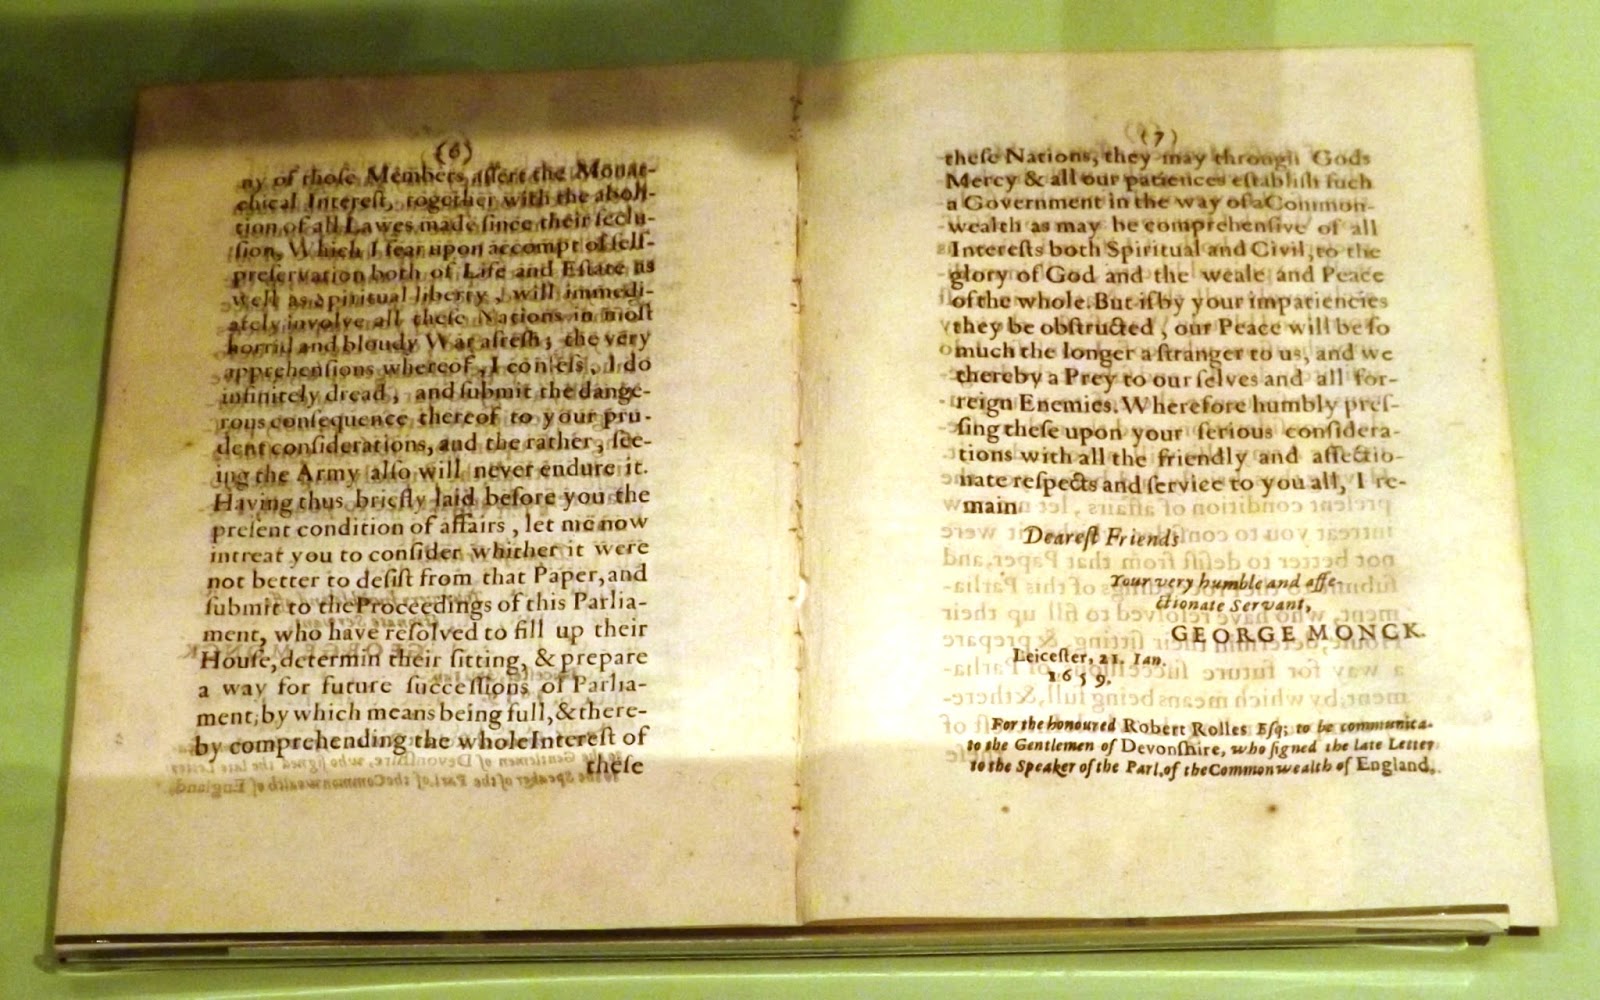 (6)
ny of thoſe Members aſſert the Monar-
chical Intereſt, together with the aboli-
tion of all Lawes made ſince their ſeclu-
ſion, Which I fear upon accompt of ſelf-
preſervation both of Life and Eſtate as
well as Spiritual liberty, will immedi-
ately involve all theſe Nations in moſt
horrid and bloudy War afreſh; the very
apprehenſions whereof, I confeſs, I do
infinitely dread, and ſubmit the dange-
rous conſequence thereof to your pru-
dent conſiderations, and the rather, ſee-
ing the Army alſo will never endure it.
Having thus briefly laid before you the
preſent condition of affairs, let me now
intreat you to conſider whither it were
not better to deſiſt from that Paper, and
ſubmit to the Proceedings of this Parlia-
ment, who have reſolved to fill up their
Houſe, determin their ſitting, & prepare
a way for future ſucceſſions of Parlia-
ment; by which means being full, & there-
by comprehending the whole Intereſt of
theſe
(7)
theſe Nations, they may through Gods
Mercy & all our patiences eſtabliſh ſuch
a Government in the way of a Common-
wealth as may be comprehenſive of all
Intereſts both Spiritual and Civil, to the
glory of God and the weale and Peace
of the whole. But if by your impatiencies
they be obſtructed, our Peace will be ſo
much the longer a ſtranger to us, and we
thereby a Prey to our ſelves and all for-
reign Enemies. Wherefore humbly preſ-
ſing theſe upon your ſerious conſidera-
tions with all the friendly and affectio-
nate reſpects and ſervice to you all, I re-
main
Deareſt Friends
Your very humble and affe-
ctionate Servant,
GEORGE MONCK.
Leiceſter, 21. Ian.
1659.
For the honoured Robert Rolles Eſq; to be communica-
to the Gentlemen of Devonſhire, who ſigned the late Letter
to the Speaker of the Parl. of the Commonwealth of England.